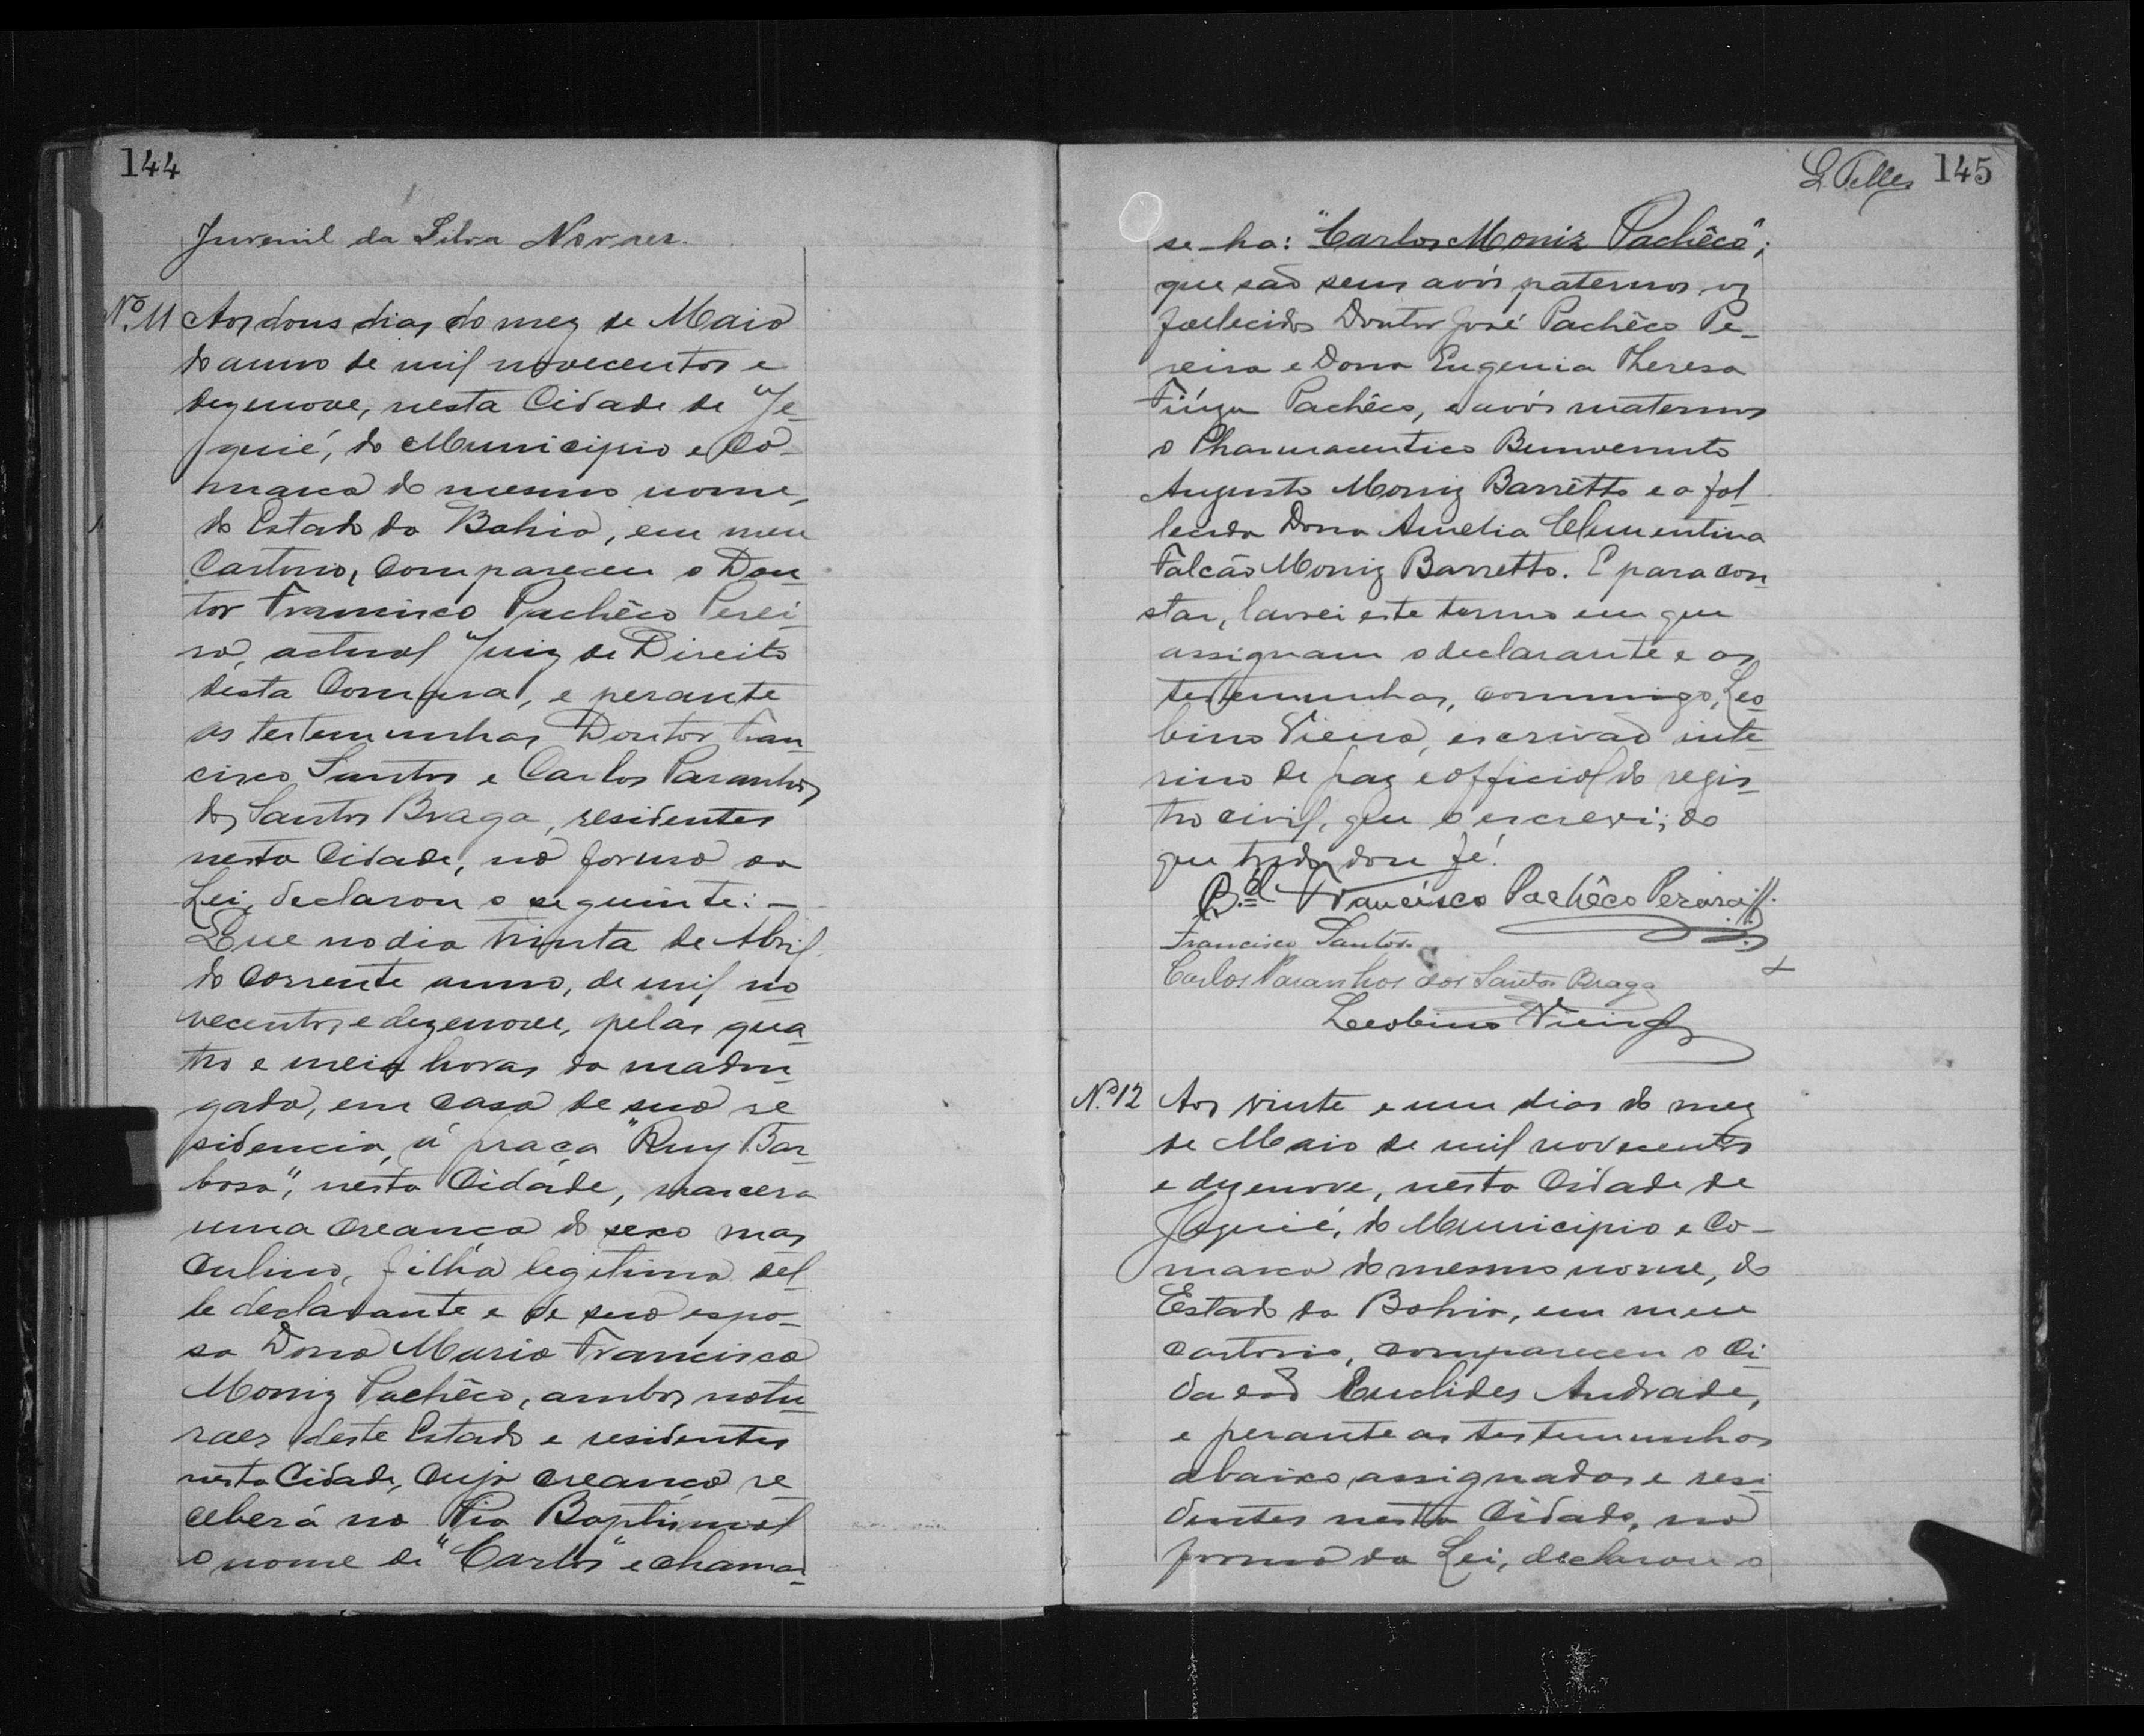 144
Juvenil da Silva Novaes.
Nº. 11 Aos dous dias do mez de Maio
do anno de mil novecentos e
dezenove, nesta Cidade de Je-
quié, do Municipio e Co-
marca do mesmo nome,
do Estado da Bahia, em meu
Cartorio, compareceu o Dou-
tor Francisco Pachêco Perei-
ra, actual Juiz de Direito
desta Comarca, e perante
as testemunhas Doutor Fran-
cisco Santos e Carlos Paranhos
dos Santos Braga, residentes
nesta Cidade, na forma da
Lei, declarou o seguinte: -
Que no dia trinta de Abril
do corrente anno, de mil no-
vecentos e dezenove, pelas qua-
tro e meia horas da madru-
gada, em casa de sua re-
sidencia, á praça "Ruy Bar-
bosa", nesta Cidade, nascera
uma creança do sexo mas-
culino, filha legitima del-
le declarante e de sua espo-
sa Dona Maria Francisca
Moniz Pachêco, ambos natu-
raes deste Estado e residentes
nesta Cidade, cuja creança re-
ceberá na Pia Baptismal
o nome de "Carlos" e chamar-
L. Telles 145
se-ha: "Carlos Moniz Pachêco";
que são seus avós paternos os
fallecidos Doutor José Pachêco Pe-
reira e Dona Eugenia Thereza
Pachêco, e avós maternos
o Pharmaceutico Bemvenuto
Augusto Moniz Barrêtto e a fal-
lecida Dona Amelia Clementina
Falcão Moniz Barretto. E para con-
star, lavrei este termo em que
assignam o declarante e as
testemunhas, commigo, Leo-
bino Vieira, escrivão inte-
rino de paz e official do regis-
tro civil, que o escrevi; do
que tudo dou fé.
B.el Francisco Pachêco Pereira
Francisco Santos.
Carlos Paranhos dos Santos Braga
Leobino Vieira
Nº. 12 Aos vinte e um dias do mez
de Maio de mil novecentos
e dezenove, nesta Cidade de
Jequié, do Municipio e Co-
marca do mesmo nome, do
Estado da Bahia, em meu
cartorio, compareceu o Ci-
dadão Euclides Andrade,
e perante as testemunhas
abaixo assignadas e resi-
dentes nesta Cidade, na
forma da Lei, declarou o